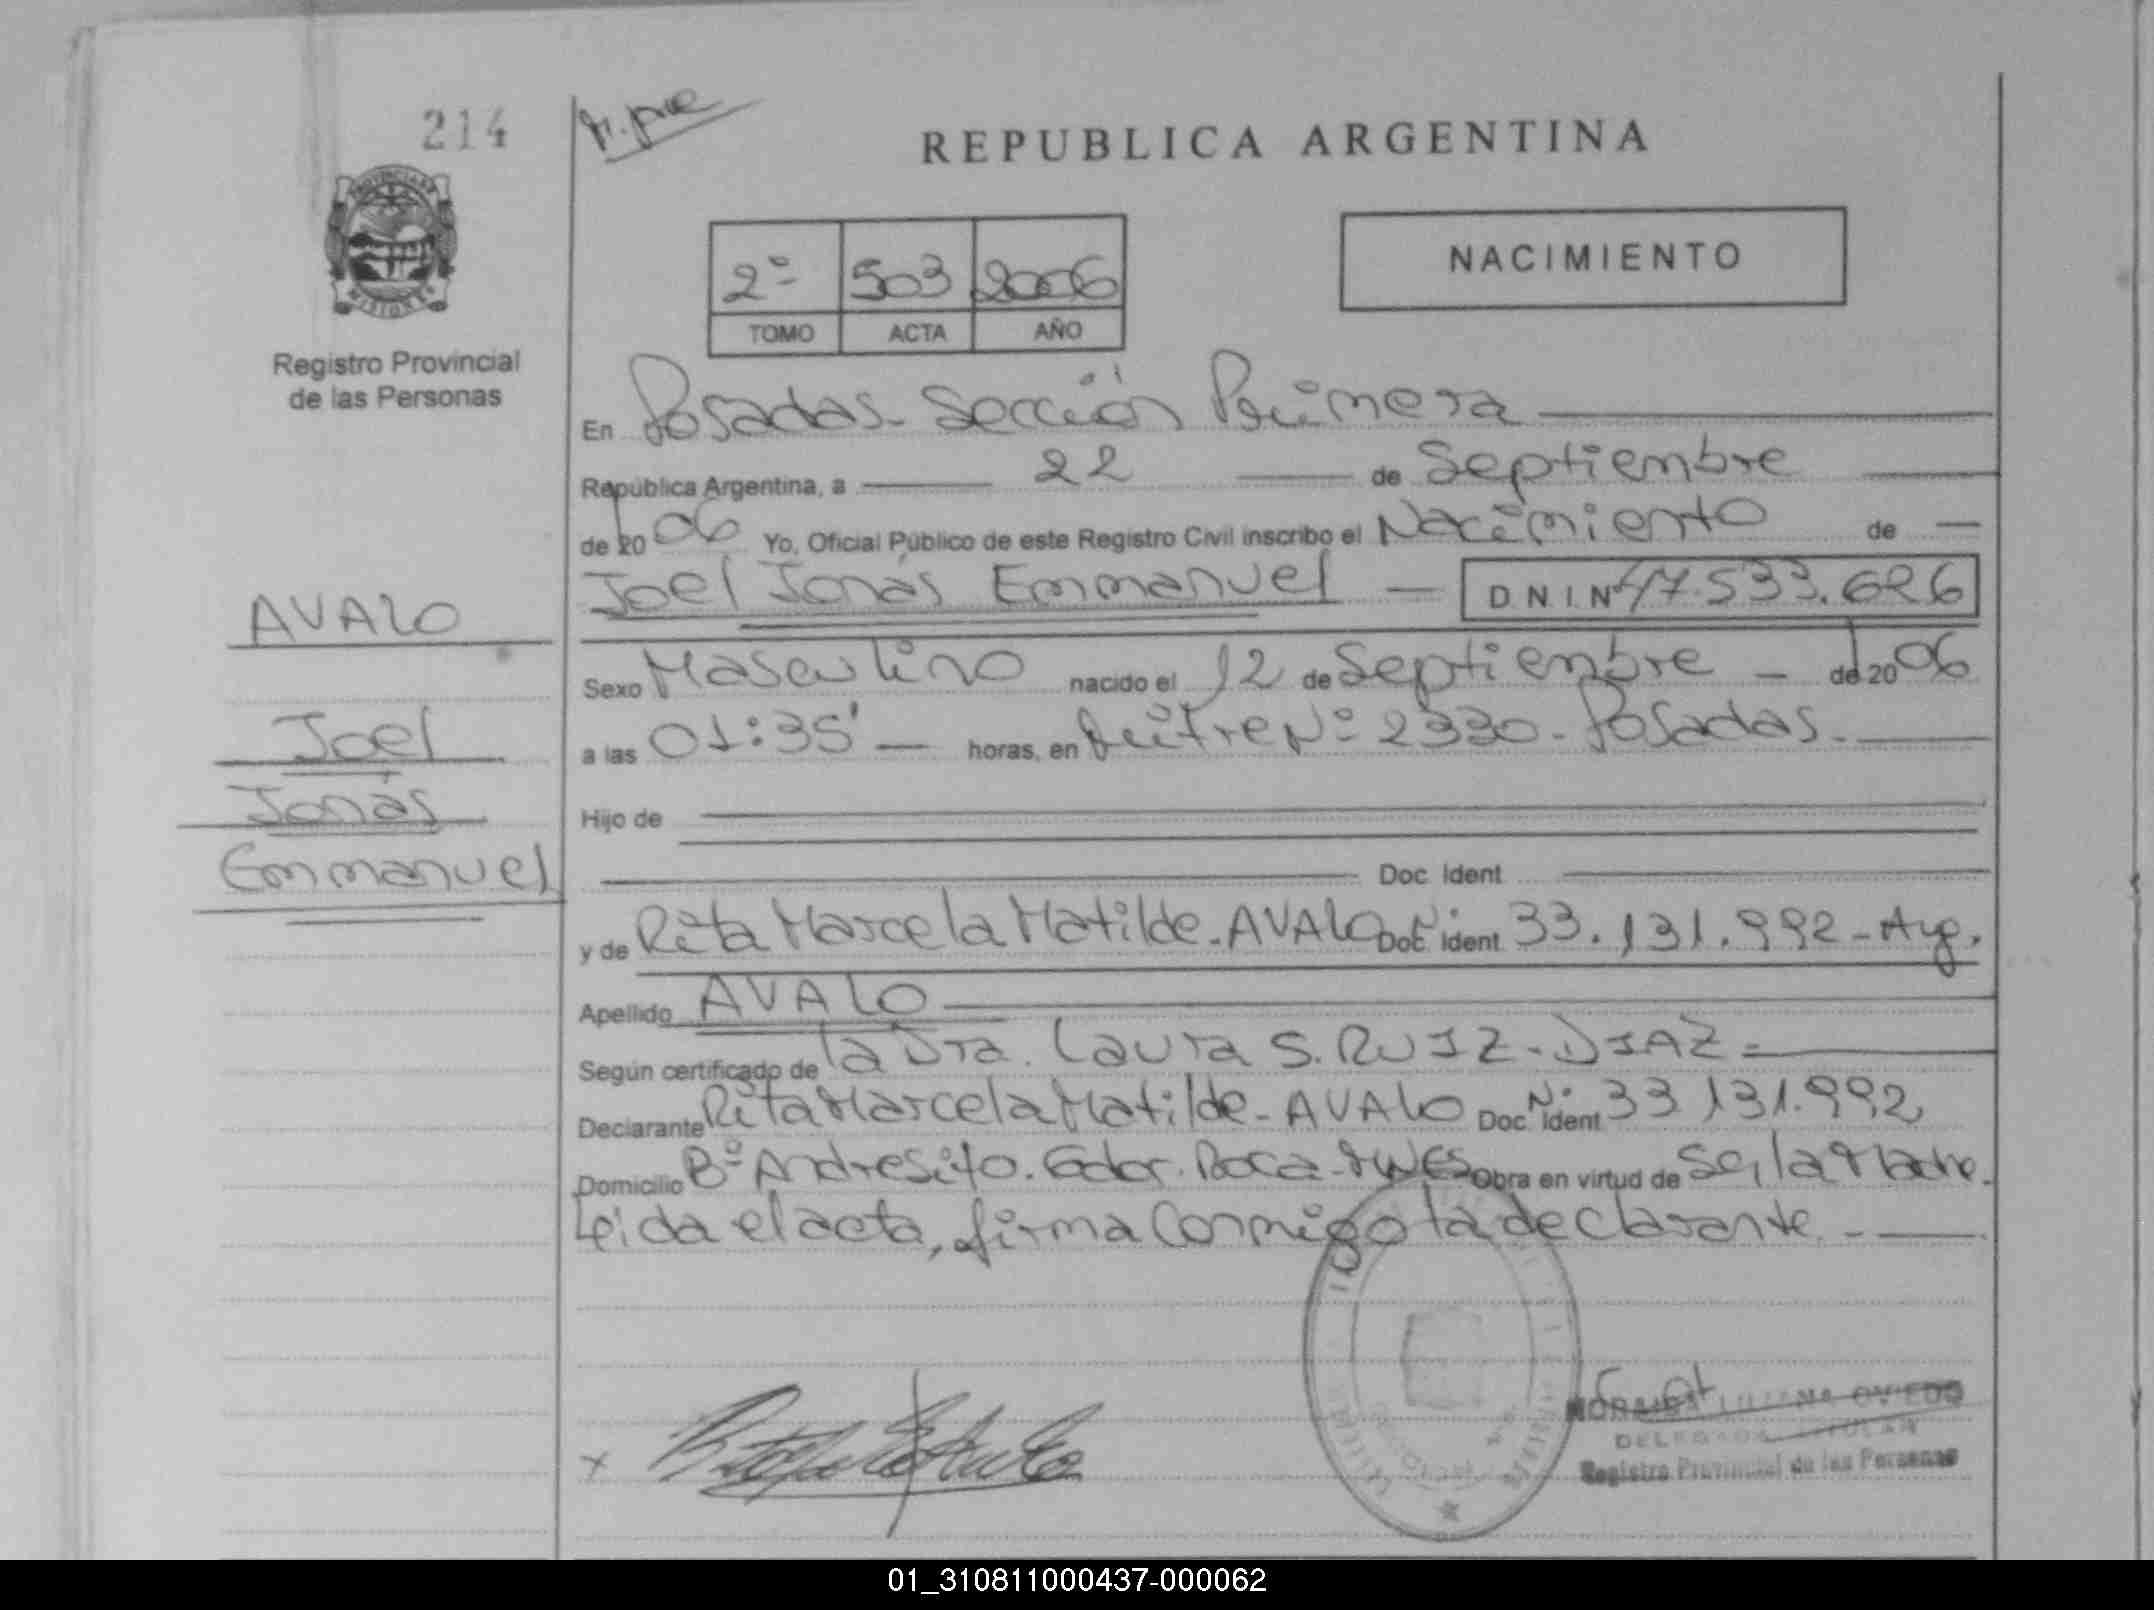 214
REPUBLICA ARGENTINA
PROVINCIA DE
MISIONES
Registro Provincial
de las Personas
2º 503 2006
TOMO ACTA AÑO
NACIMIENTO
En Posadas - Sección Primera
República Argentina, a 22 de Septiembre
de 2006 Yo, Oficial Público de este Registro Civil inscribo el Nacimiento de
Joel Jonás Emmanuel — D N I Nº 47.533.626
AVALO
Joel
Jonás
Emmanuel
Sexo Masculino nacido el 12 de Septiembre - de 2006
a las 01:35' — horas, en Mitre Nº 2330 - Posadas.
Hijo de
Doc. Ident
y de Rita Marcela Matilde - AVALO Doc. Nº Ident 33.131.992 - Arg.
Apellido AVALO
Según certificado de la Dra. Laura S. RUIZ - DIAZ =
Declarante Rita Marcela Matilde - AVALO Doc. Nº Ident 33 131.992
Domicilio Bº Andresito. Gdor. Roca - Mnes Obra en virtud de Ser la Madre.
Leida el acta, firma Conmigo la declarante. -
x
LILIANA OVIEDO
DELEGADA TITULAR
Registro Provincial de las Personas
01_310811000437-000062